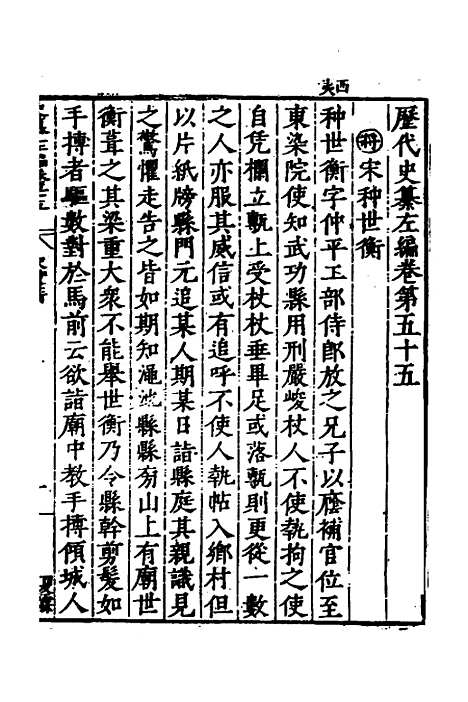 西羌
歷代史纂左編卷第五十五
将 宋种世衡
种世衡字仲平工部侍郎放之兄子以廕補官位至
東染院使知武功縣用刑嚴峻杖人不使執拘之使
自凭欄立甎上受杖杖垂畢足或落甎則更從一數
之人亦服其威信或有追呼不使人執帖入鄉村但
以片紙牓縣門元追某人期某日詣縣庭其親識見
之驚懼走告之皆如期知澠池縣縣旁山上有廟世
衡葺之其梁重大衆不能舉世衡乃令縣幹剪髮如
手搏者驅數對於馬前云欲詣廟中教手搏傾城人